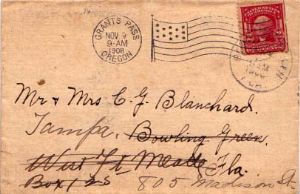 GRANTS PASS
NOV 9
9-AM
1908
OREGON
Mr & Mrs C. G. Blanchard.
Tampa, Bowling Green,
West Ft Meade Fla.
Box 125 805 Madison St